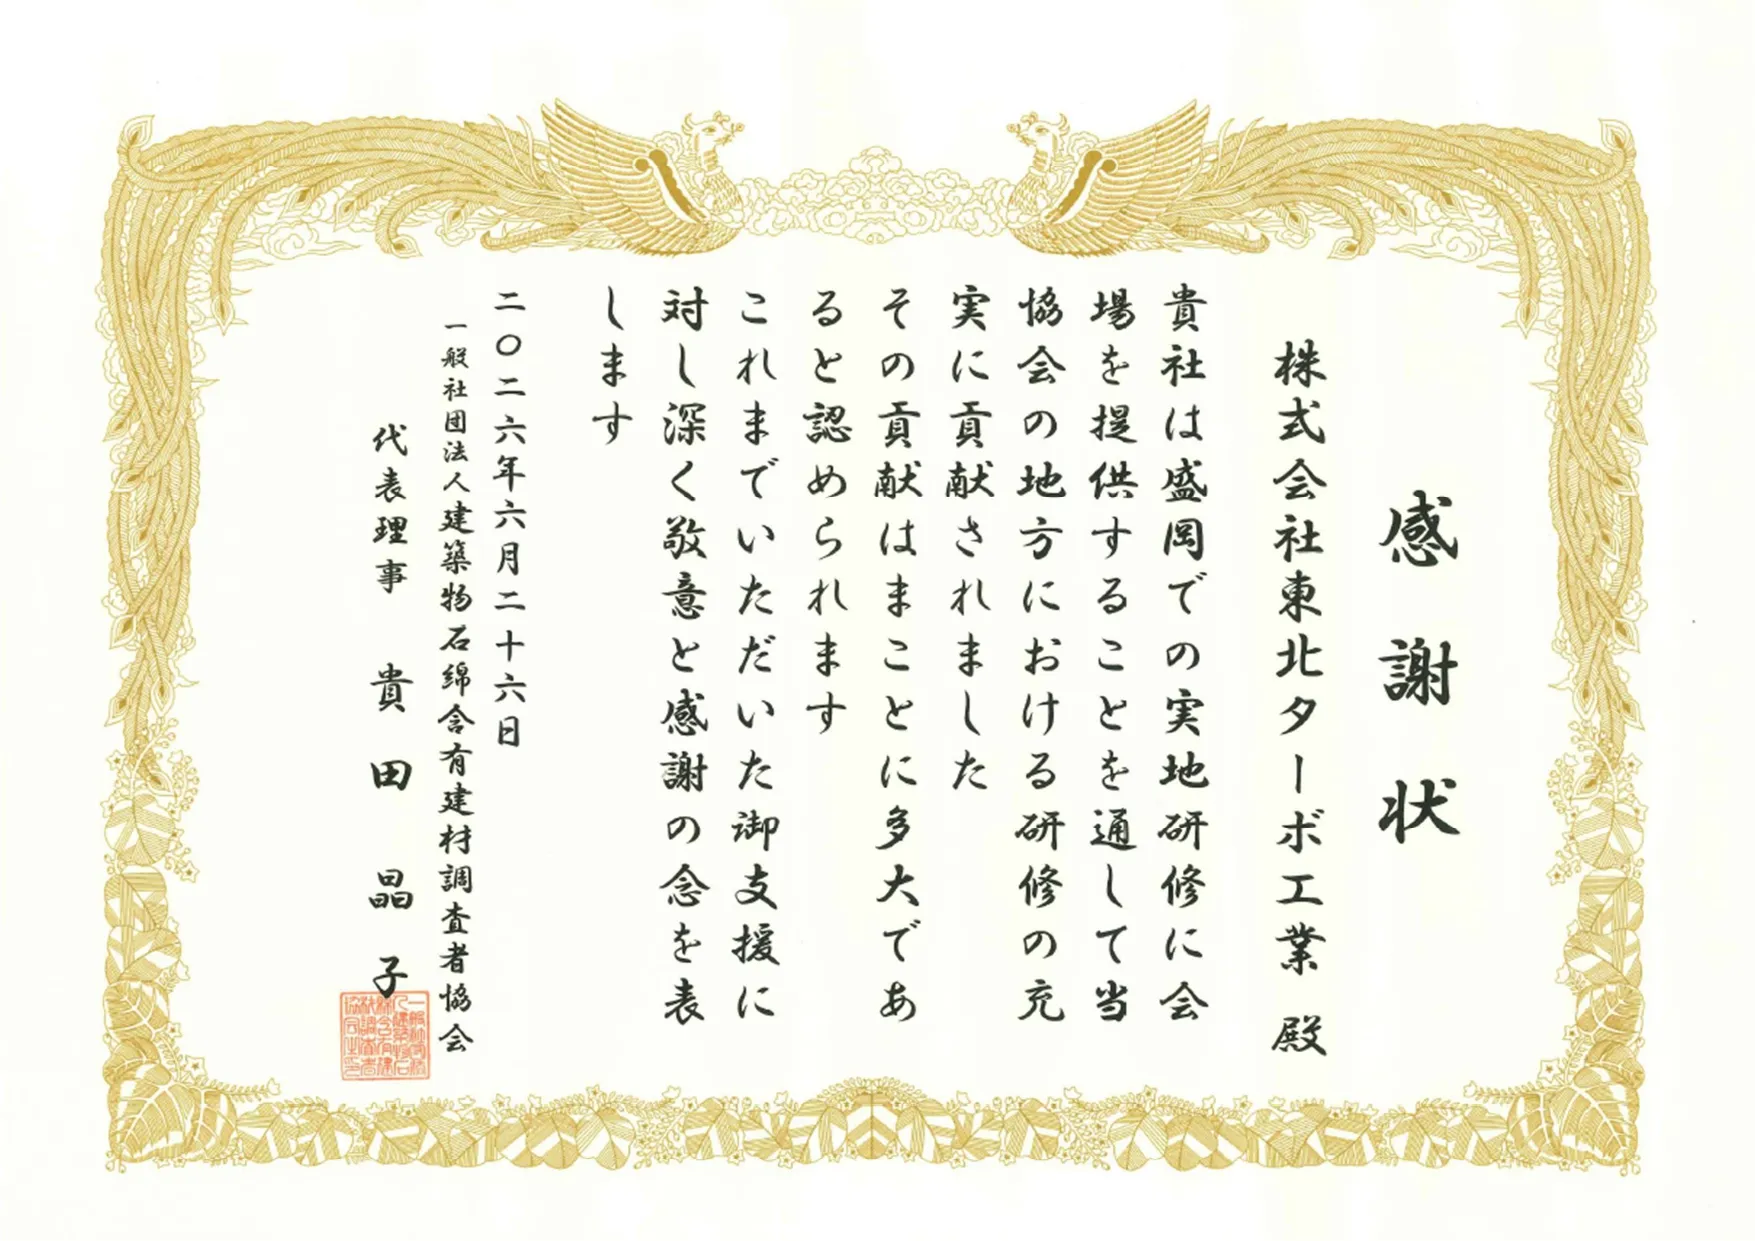 感謝状
株式会社東北ターボ工業 殿
貴社は盛岡での実地研修に会
場を提供することを通して当
協会の地方における研修の充
実に貢献されました
その貢献はまことに多大であ
ると認められます
これまでいただいた御支援に
対し深く敬意と感謝の念を表
します
二〇二六年六月二十六日
一般社団法人建築物石綿含有建材調査者協会
代表理事 貴田晶子